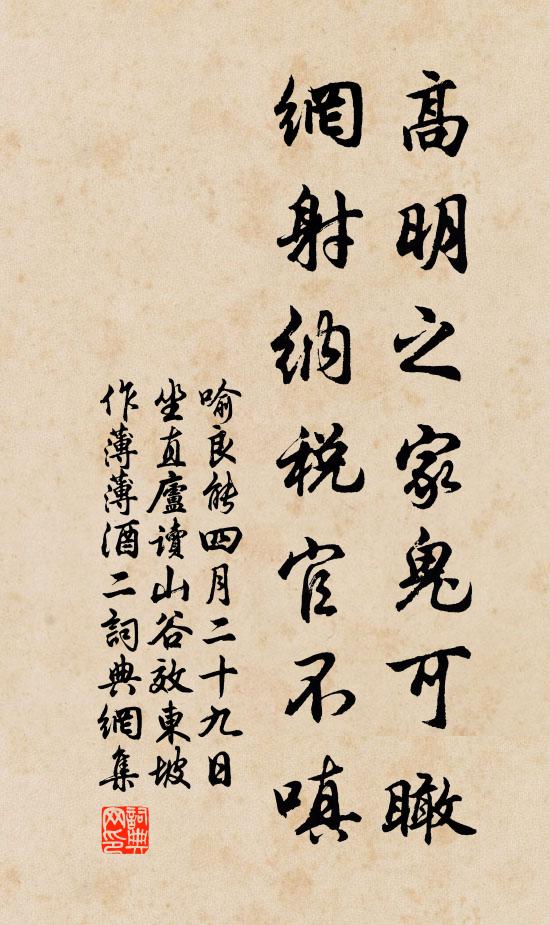 高明之家鬼可瞰
網射納税官不嗔
喻良能四月二十九日
坐直廬讀山谷效東坡
作薄薄酒二詞典網集
詞典
网印